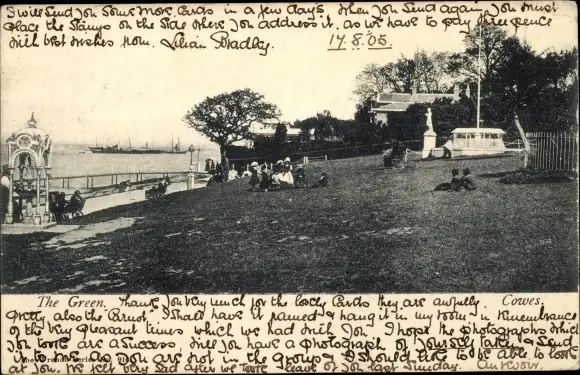 I will send you some more cards in a few days. When you send again you must
place the stamps on the side where you address it. as we have to pay three pence
With best wishes from. Lilian Bradley. 17.8.05.
The Green. Thank you very much for the lovely cards they are awfully Cowes.
pretty also the "Burnot" I shall have it framed & hang it in my room in Remembrance
of the very pleasant times which we had with you I hope the photographs which
you took are a success. Will you have a photograph of yourself taken & send
it to me as you are not in the group & I should like to be able to look
at you. We felt very sad after we took leave of you last Sunday. Au revoir.